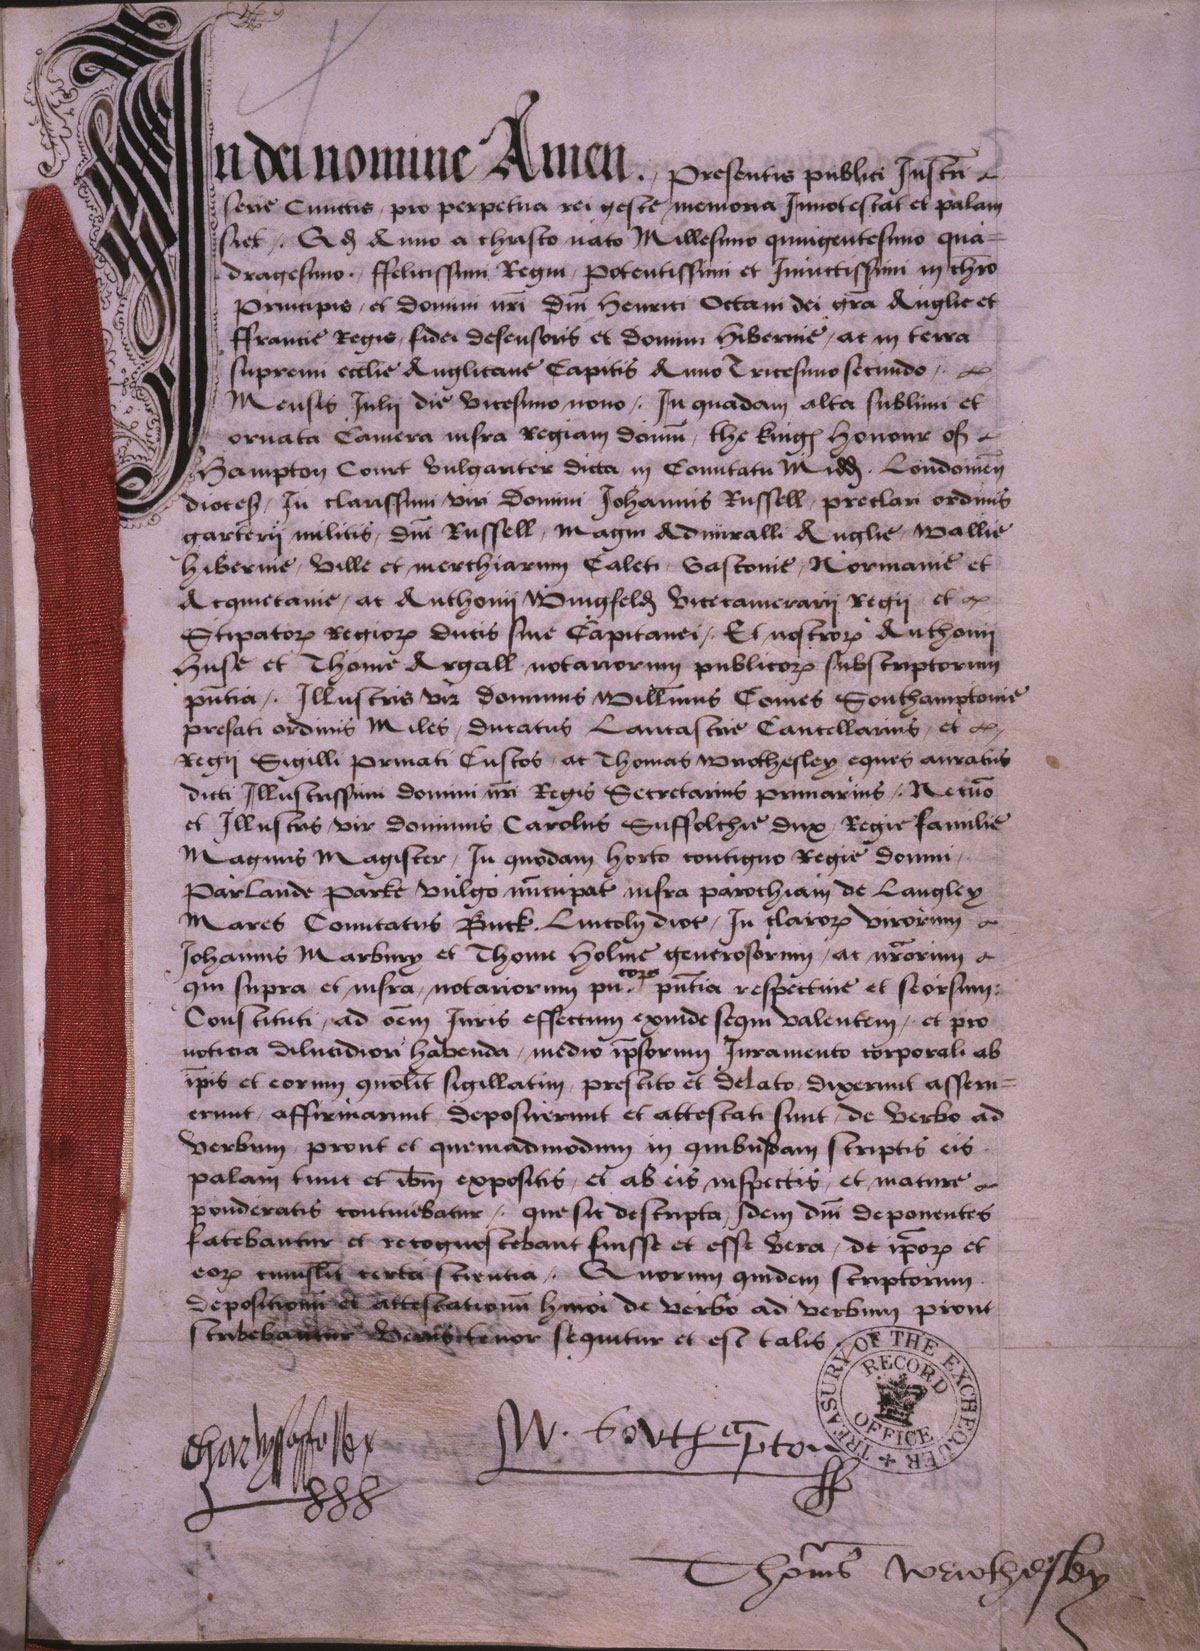 In dei nomine Amen ./ Presentis publici Instrũ
serie Cunctis / pro perpetua rei geste memoria Innotescat et palam
siet /. Qđ Anno a christo nato Millesimo quingentesimo qua=
dragesimo . ffelicissimi Regni / potentissimi et Inuictissimi in chr̄o
Principis / et domini nr̄i Dn̄i Henrici Octaui dei gr̄a Anglie et
ffrancie Regis / fidei defensoris et domini Hibernie / ac in terra
supremi ecclie Anglicane Capitis Anno Tricesimo secundo /.
Mensis Iulij die vicesimo nono /. In quadam alta sublimi et
ornata Camera infra Regiam domũ / the kingꝭ Honour of
Hampton Court vulgariter dicta in Comitatu Midđ . Londonieñ
dioceꝭ / In clarissimi viri Domini Iohannis Russell / preclari ordinis
garterij militis / dn̄i Russell / Magni Admiralli Anglie / Wallie
hibernie / ville et merchiarum Caleti / Vasconie / Normanie et
Acquietanie / ac Anthonij Wingfeld Vicecamerarij Regij / et
Stipatoꝝ Regioꝝ ducis siue Capitanei /. Et nostroꝝ Anthonij
Huse et Thome Argall notariorum publicoꝝ subscriptorum
pñtia /. Illustris vir dominus Willm̃us Comes Southamptonie
prefati ordinis Miles / ducatus Lancastrie Cancellarius / et
Regij Sigilli priuati Custos / ac Thomas Wriothesley eques auratus
dicti Illustrissimi domini nr̄i Regis Secretarius primarius /. Necnõ
et Illustris vir dominus Carolus Suffolchie dux / Regie familie
Magnus Magister / In quodam horto contiguo Regie domui /
Parlaude Parke vulgo nũcupat̃ infra parochiam de Langley
Mares Comitatus Buck . Lincolñ dioc̃ / In claroꝝ virorum
Iohannis Marbury et Thome Holme generosorum / ac nr̄orum
qui supra et infra / notariorum pu.coꝝ pñtia respectiue et seorsum :
Constituti / ad oēm Iuris effectum exinde sequi valentem / et pro
noticia dilucidiori habenda / medio ip̄sorum Iuramento corporali ab
ip̄is et eorum quoliƀt sigillatim / prestito et delato / dixerunt asseru=
erunt / affirmarunt / deposuerunt et attestati sunt / de verbo ad
verbum / prout et quemadmodum in quibusdam scriptis eis
palam tunc et ibm̃ expositis / et ab eis inspectis / et mature
ponderatis continebatur /. que sic descripta / Idem dn̄i deponentes
fatebantur et recognoscebant fuisse et esse vera / de ip̄oꝝ et
eoꝝ cuiusliƀt certa scientia /. Quorum quidem scriptorum
depositionũ et attestationũ hm̃oi de verbo ad verbum prout
scribebantur verus tenor sequitur et est talis .
Charlyssoffolk
W. Southampton
Thoms Wriothesley
TREASURY OF THE EXCHEQUER
RECORD OFFICE